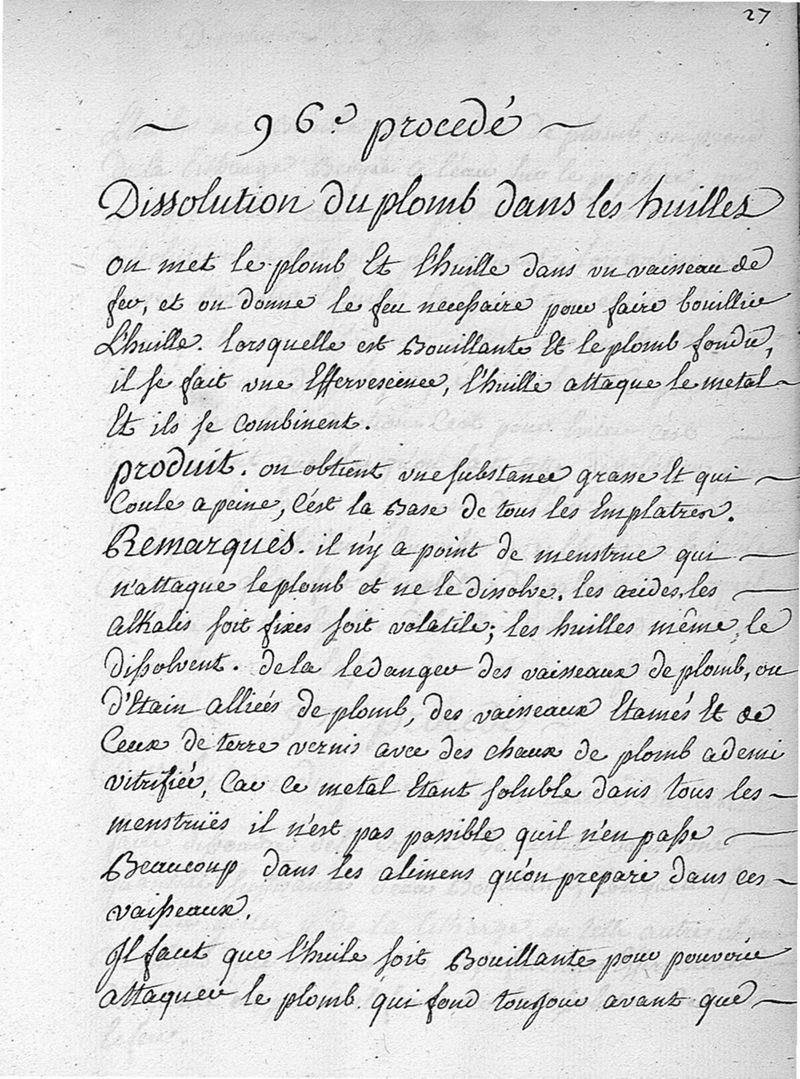 27
~ 96e procedé ~
Dissolution du plomb dans les huilles
on met le plomb Et l'huille dans vn vaisseau de
feu, et on donne le feu necessaire pour faire bouillir
L'huille. lorsquelle est Bouillante Et le plomb fondu,
il se fait vne Effervescence, l'huille attaque le metal
Et ils se Combinent.
produit. on obtient vne substance grasse Et qui
Coule a peine, C'est la Base de tous les Emplatres.
Remarques. il n'y a point de menstrue qui
n'attaque le plomb et ne le dissolve. les acides, les
alkalis soit fixes soit volatile; les huilles même, le
dissolvent. de la le danger des vaisseaux de plomb, ou
d'Etain alliées de plomb, des vaisseaux Etamés Et de
Ceux de terre vernis avec des chaux de plomb a demi
vitrifiée, Car Ce metal Etant soluble dans tous les
menstruës il n'est pas passible quil n'en passe
Beaucoup dans les alimens qu'on prepare dans ces
vaisseaux.
Il faut que l'huile soit Bouillante pour pouvoir
attaquer le plomb qui fond toujour avant que